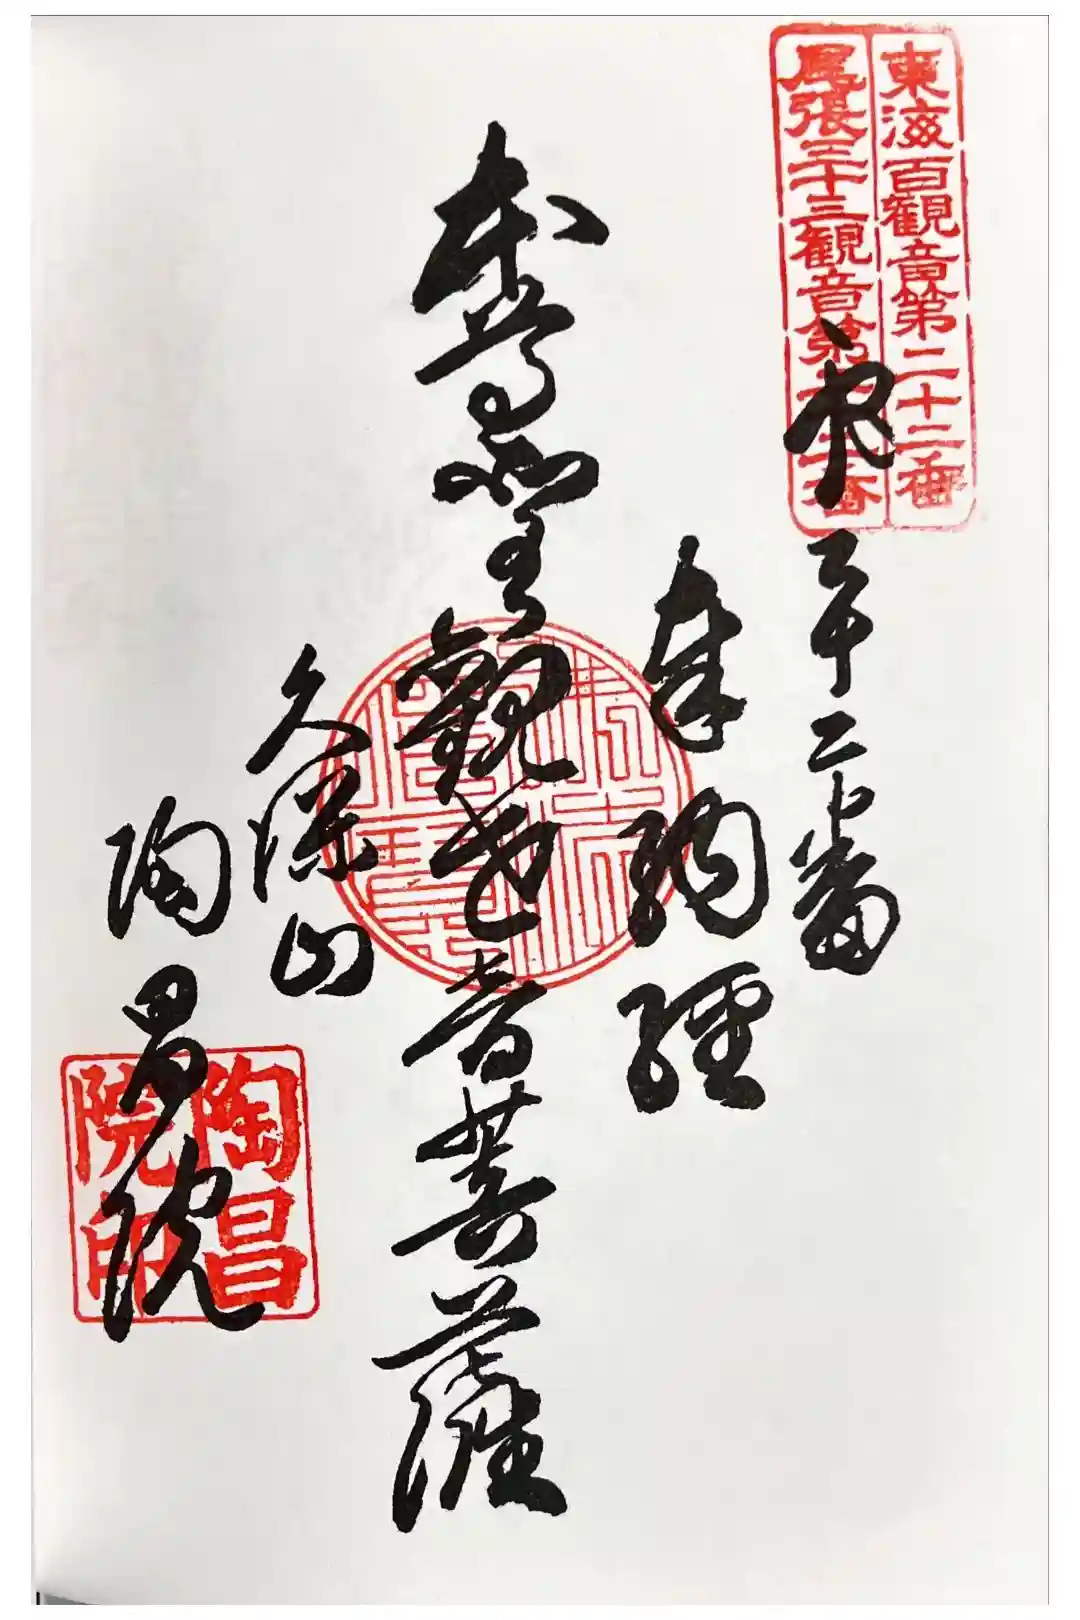 東海百観音第二十二番
尾張三十三観音第二十二番
二十二番
奉納経
本尊聖観世音菩薩
久 山
陶昌院
陶昌院印